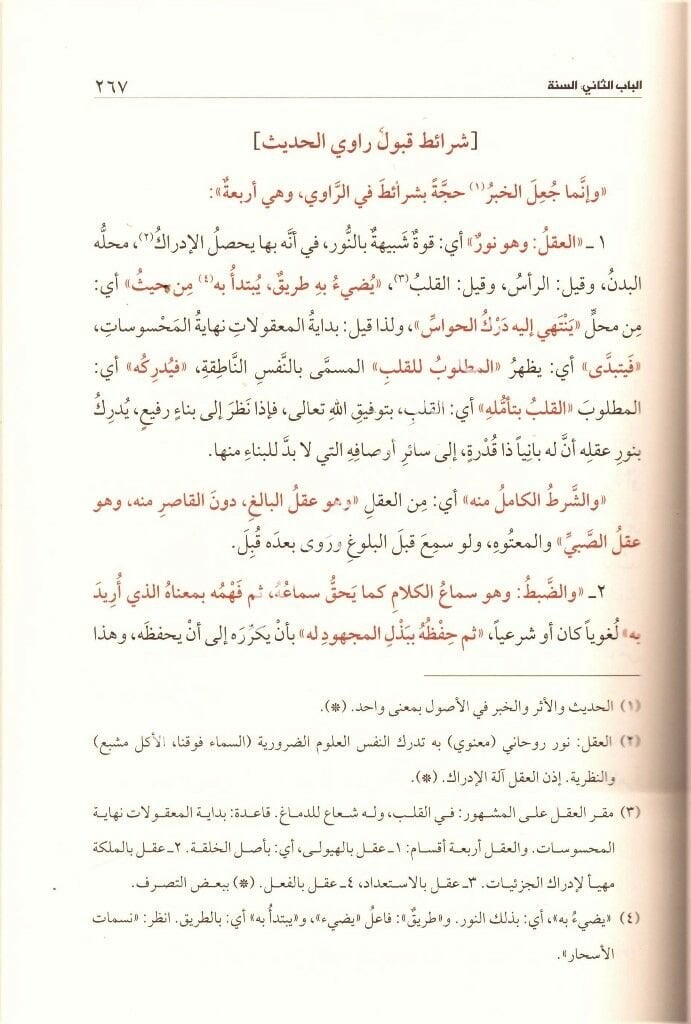 الباب الثاني: السنة
٢٦٧
[شرائط قبول راوي الحديث]
«وإنَّما جُعِلَ الخبرُ(١) حجَّةً بشرائطَ في الرَّاوي، وهي أربعةٌ»:
١ ـ «العقلُ: وهو نورٌ» أي: قوةٌ شَبيهةٌ بالنُّور، في أنَّه بها يحصلُ الإدراكُ(٢)، محلُّه
البدنُ، وقيل: الرأسُ، وقيل: القلبُ(٣)، «يُضيءُ بهِ طريقٌ، يُبتدأُ به(٤) مِن حيثُ» أي:
مِن محلِّ «يَنْتَهي إليه دَرْكُ الحواسِّ»، ولذا قيل: بدايةُ المعقولاتِ نهايةُ المَحْسوسات،
«فَيتبدَّى» أي: يظهرُ «المطلوبُ للقلبِ» المسمَّى بالنَّفسِ النَّاطقةِ، «فيُدرِكُه» أي:
المطلوبَ «القلبُ بتأمُّلهِ» أي: القلبِ، بتوفيقِ اللهِ تعالى، فإذا نَظرَ إلى بناءٍ رفيعٍ، يُدركُ
بنورِ عقلِه أنَّ له بانِياً ذا قُدْرةٍ، إلى سائرِ أوصافِهِ التي لا بدَّ للبناءِ منها.
«والشَّرطُ الكاملُ منه» أي: مِن العقلِ «وهو عقلُ البالغِ، دونَ القاصرِ منه، وهو
عقلُ الصَّبيِّ» والمعتُوهِ، ولو سمِعَ قبلَ البلوغِ وروى بعدَه قُبِلَ.
٢ـ «والضَّبطُ: وهو سماعُ الكلامِ كما يَحقُّ سماعُهُ، ثم فَهْمُه بمعناهُ الذي أُرِيدَ
به» لُغوياً كان أو شرعياً، «ثم حِفْظُهُ ببَذْلِ المجهودِ له» بأنْ يكرِّرَه إلى أنْ يحفظَه، وهذا
(١) الحديث والأثر والخبر في الأصول بمعنى واحد. (*).
(٢) العقل: نور روحاني (معنوي) به تدرك النفس العلوم الضرورية (السماء فوقنا، الأكل مشبع)
والنظرية. إذن العقل آلة الإدراك. (*).
(٣) مقر العقل على المشهور: في القلب، وله شعاع للدماغ. قاعدة: بداية المعقولات نهاية
المحسوسات. والعقل أربعة أقسام: ١ـ عقل بالهيولى، أي: بأصل الخلقة. ٢ـ عقل بالملكة
مهيأ لإدراك الجزئيات. ٣ـ عقل بالاستعداد، ٤ـ عقل بالفعل. (*) ببعض التصرف.
(٤) «يضيءُ به»، أي: بذلك النور. و«طريقٌ»: فاعلُ «يضيء»، و«يبتدأُ به» أي: بالطريق. انظر: «نسمات
الأسحار».